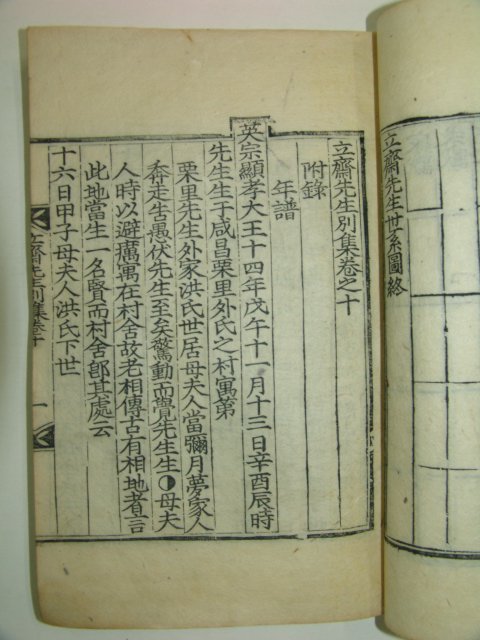 立齋先生世系圖終
立齋先生別集卷之十
附錄
年譜
英宗顯孝大王十四年戊午十一月十三日辛酉辰時
先生生于咸昌栗里外氏之村寓第
栗里先生外家洪氏世居母夫人當彌月夢家人
奔走告愚伏先生至矣驚動而覺先生生◑母夫
人時以避癘寓在村舍故老相傳古有相地者言
此地當生一名賢而村舍卽其處云
十六日甲子母夫人洪氏下世
立齋先生別集卷十
一